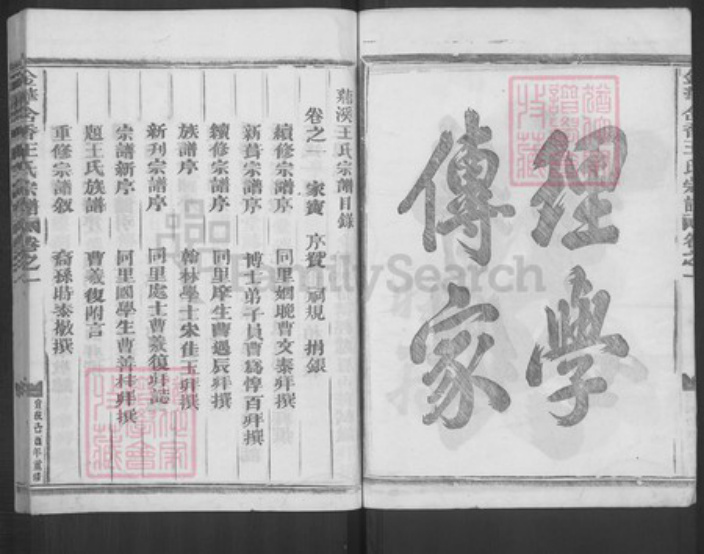 經學
傳家
王氏宗譜目錄
卷之一 家寶 序贊 規 捐銀
續修宗譜序 同里姻晚曹文泰拜撰
新葺宗譜序 博士弟子員曹為惇百拜撰
續修宗譜序 同里庠生曹遇辰拜撰
族譜序 翰林學士宋佳玉拜撰
新刊宗譜序 同里處士曹羲復拜誌
宗譜新序 同里國學生曹善材拜撰
題王氏族譜 曹羲復附言
重修宗譜叙 裔孫時泰撰
金華合香王氏宗譜 卷之一
FamilySearch